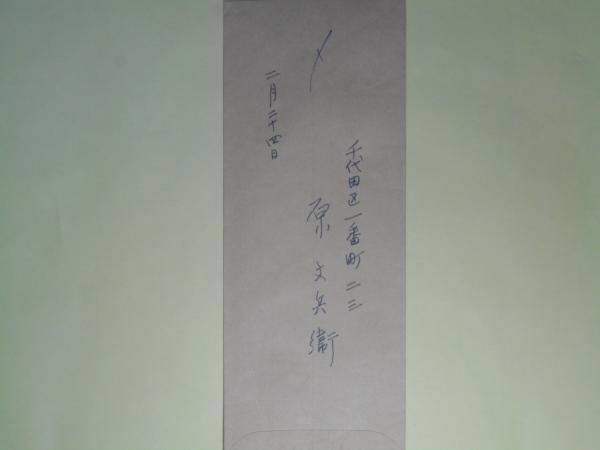 千代田区一番町二三
原文兵衛
二月二十四日
〆